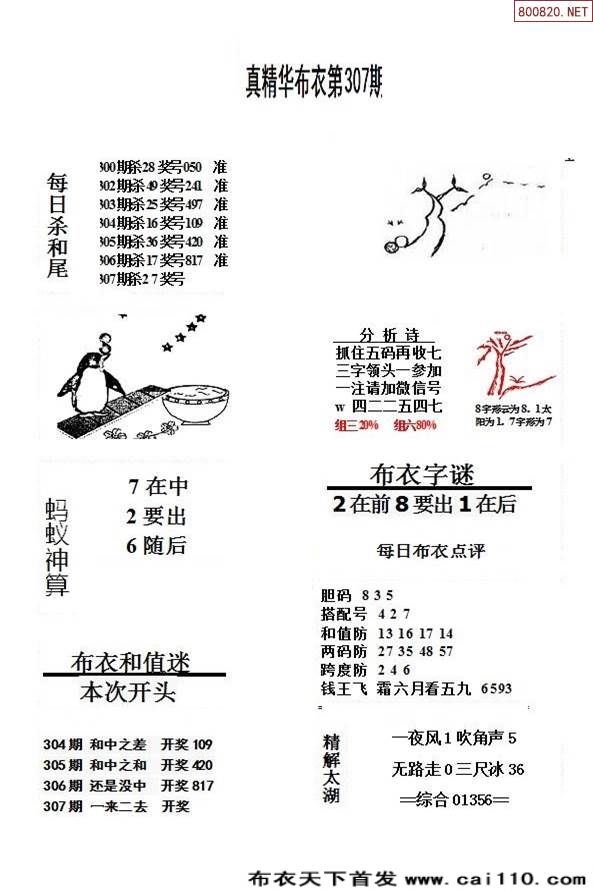 800820.NET
真精华布衣第307期
每日杀和尾
300期杀28 奖号050 准
302期杀49 奖号241 准
303期杀25 奖号497 准
304期杀16 奖号109 准
305期杀36 奖号420 准
306期杀17 奖号817 准
307期杀27 奖号
分析诗
抓住五码再收七
三字领头一参加
一注请加微信号
w 四二二五四七
组三20% 组六80%
8字形云为8.1太
阳为1.7字形为7
蚂蚁神算
7在中
2要出
6随后
布衣字谜
2在前8要出1在后
每日布衣点评
胆码 8 3 5
搭配号 4 2 7
和值防 13 16 17 14
两码防 27 35 48 57
跨度防 2 4 6
钱王飞 霜六月看五九 6593
布衣和值迷
本次开头
304期 和中之差 开奖109
305期 和中之和 开奖420
306期 还是没中 开奖817
307期 一来二去 开奖
精解太湖
一夜风1吹角声5
无路走0三尺冰36
==综合01356==
布衣天下首发 www.cai110.com